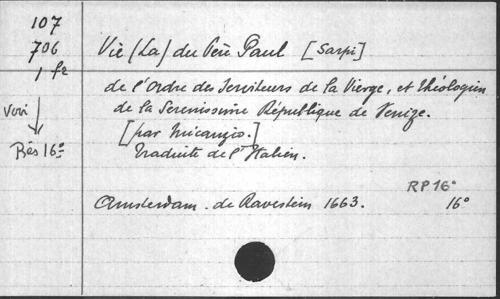 107
706
1 fr
Voir
Rés 16º
Vie (La) du Père Paul [Sarpi]
de l'Ordre des Serviteurs de la Vierge, et théologien
de la Serenissime République de Venize.
[par Micanzio.]
Traduite de l'Italien.
RP 16º
Amsterdam. de Ravestein 1663. 16º